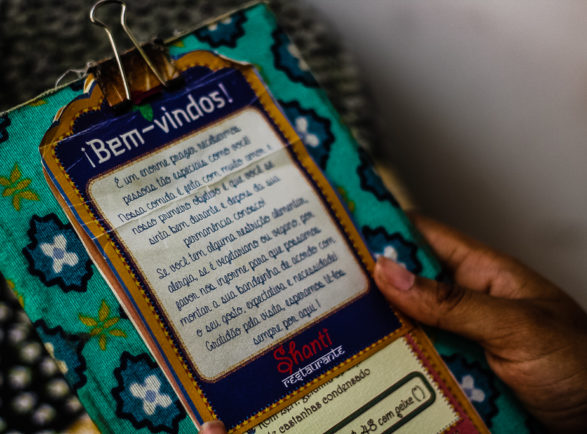 ¡Bem-vindos!
É um enorme prazer recebermos
pessoas tão especiais como você!
Nossa comida é feita com muito amor e
nosso primeiro objetivo é que você se
sinta bem durante e depois da sua
permanência conosco!
Se você tem alguma restrição alimentar,
alergia, se é vegetariano ou vegano, por
favor nos informe para que possamos
montar a sua bandejinha de acordo com
o seu gosto, expectativa e necessidade!
Gratidão pela visita, esperamos tê-los
sempre por aqui!
Shanti
restaurante
de castanhas condensado
48 com peixe